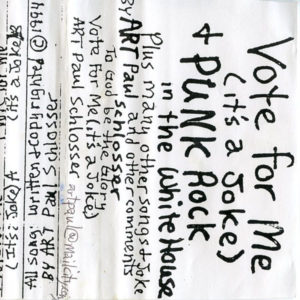 Vote for Me
(it's a Joke)
+ PUNK ROCK
in the White House
Plus many other songs + Joke
and other comments
by ART Paul Schlosser
To God be the Glory
Vote For Me (it's a Joke)
ART Paul Schlosser
All songs written + copyrighted
By Art Paul Schlosser